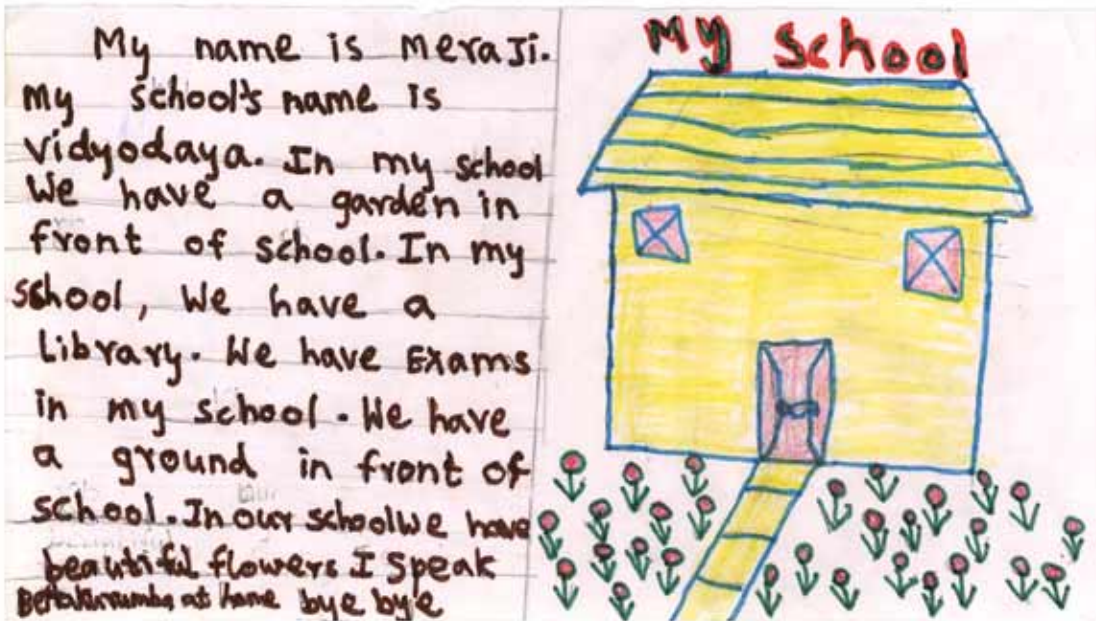 My name is Meraji.
My school's name is
vidyodaya. In my school
We have a garden in
front of school. In my
school, We have a
Library. We have Exams
in my school. We have
a ground in front of
school. In our school we have
beautiful flowers I speak
at home bye bye
My School